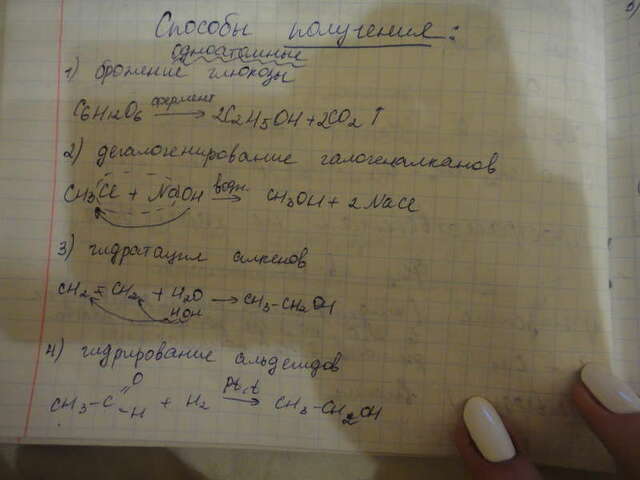 Способы получения:
одноатомные
1) брожение глюкозы
C6H12O6 фермент → 2C2H5OH + 2CO2 ↑
2) дегалогенирование галогеналканов
CH3Cl + NaOH водн. → CH3OH + 2 NaCl
3) гидратация алкенов
CH2 = CH2 + H2O → CH3-CH2OH
HOH
4) гидрирование альдегидов
CH3-C =O -H + H2 Pt, t → CH3-CH2OH